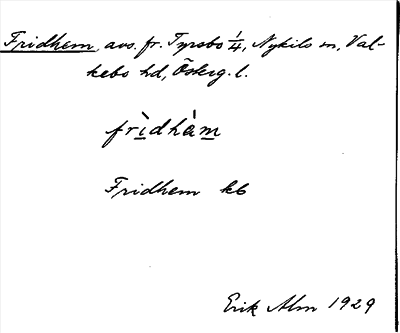 Fridhem, avs. fr. Tyrsbo 1/4, Nykils sn, Val-
kebo hd, Österg. l.
frìdhàm
Fridhem kb
Erik Alm 1929